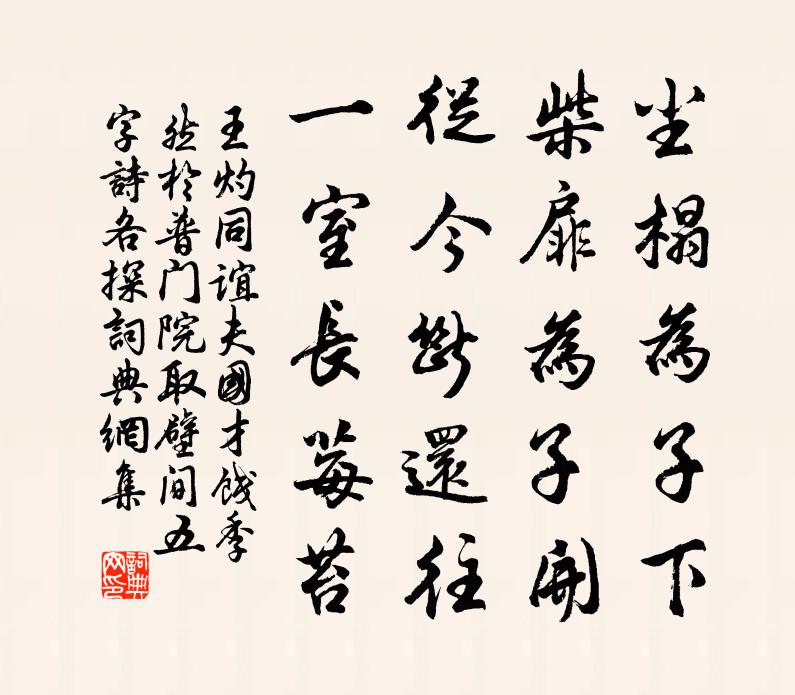 尘榻為子下
柴扉為子開
從今斷還往
一室長莓苔
王灼同誼夫國才餞季
然於普门院取壁间五
字詩各探詞典網集
詞典网印